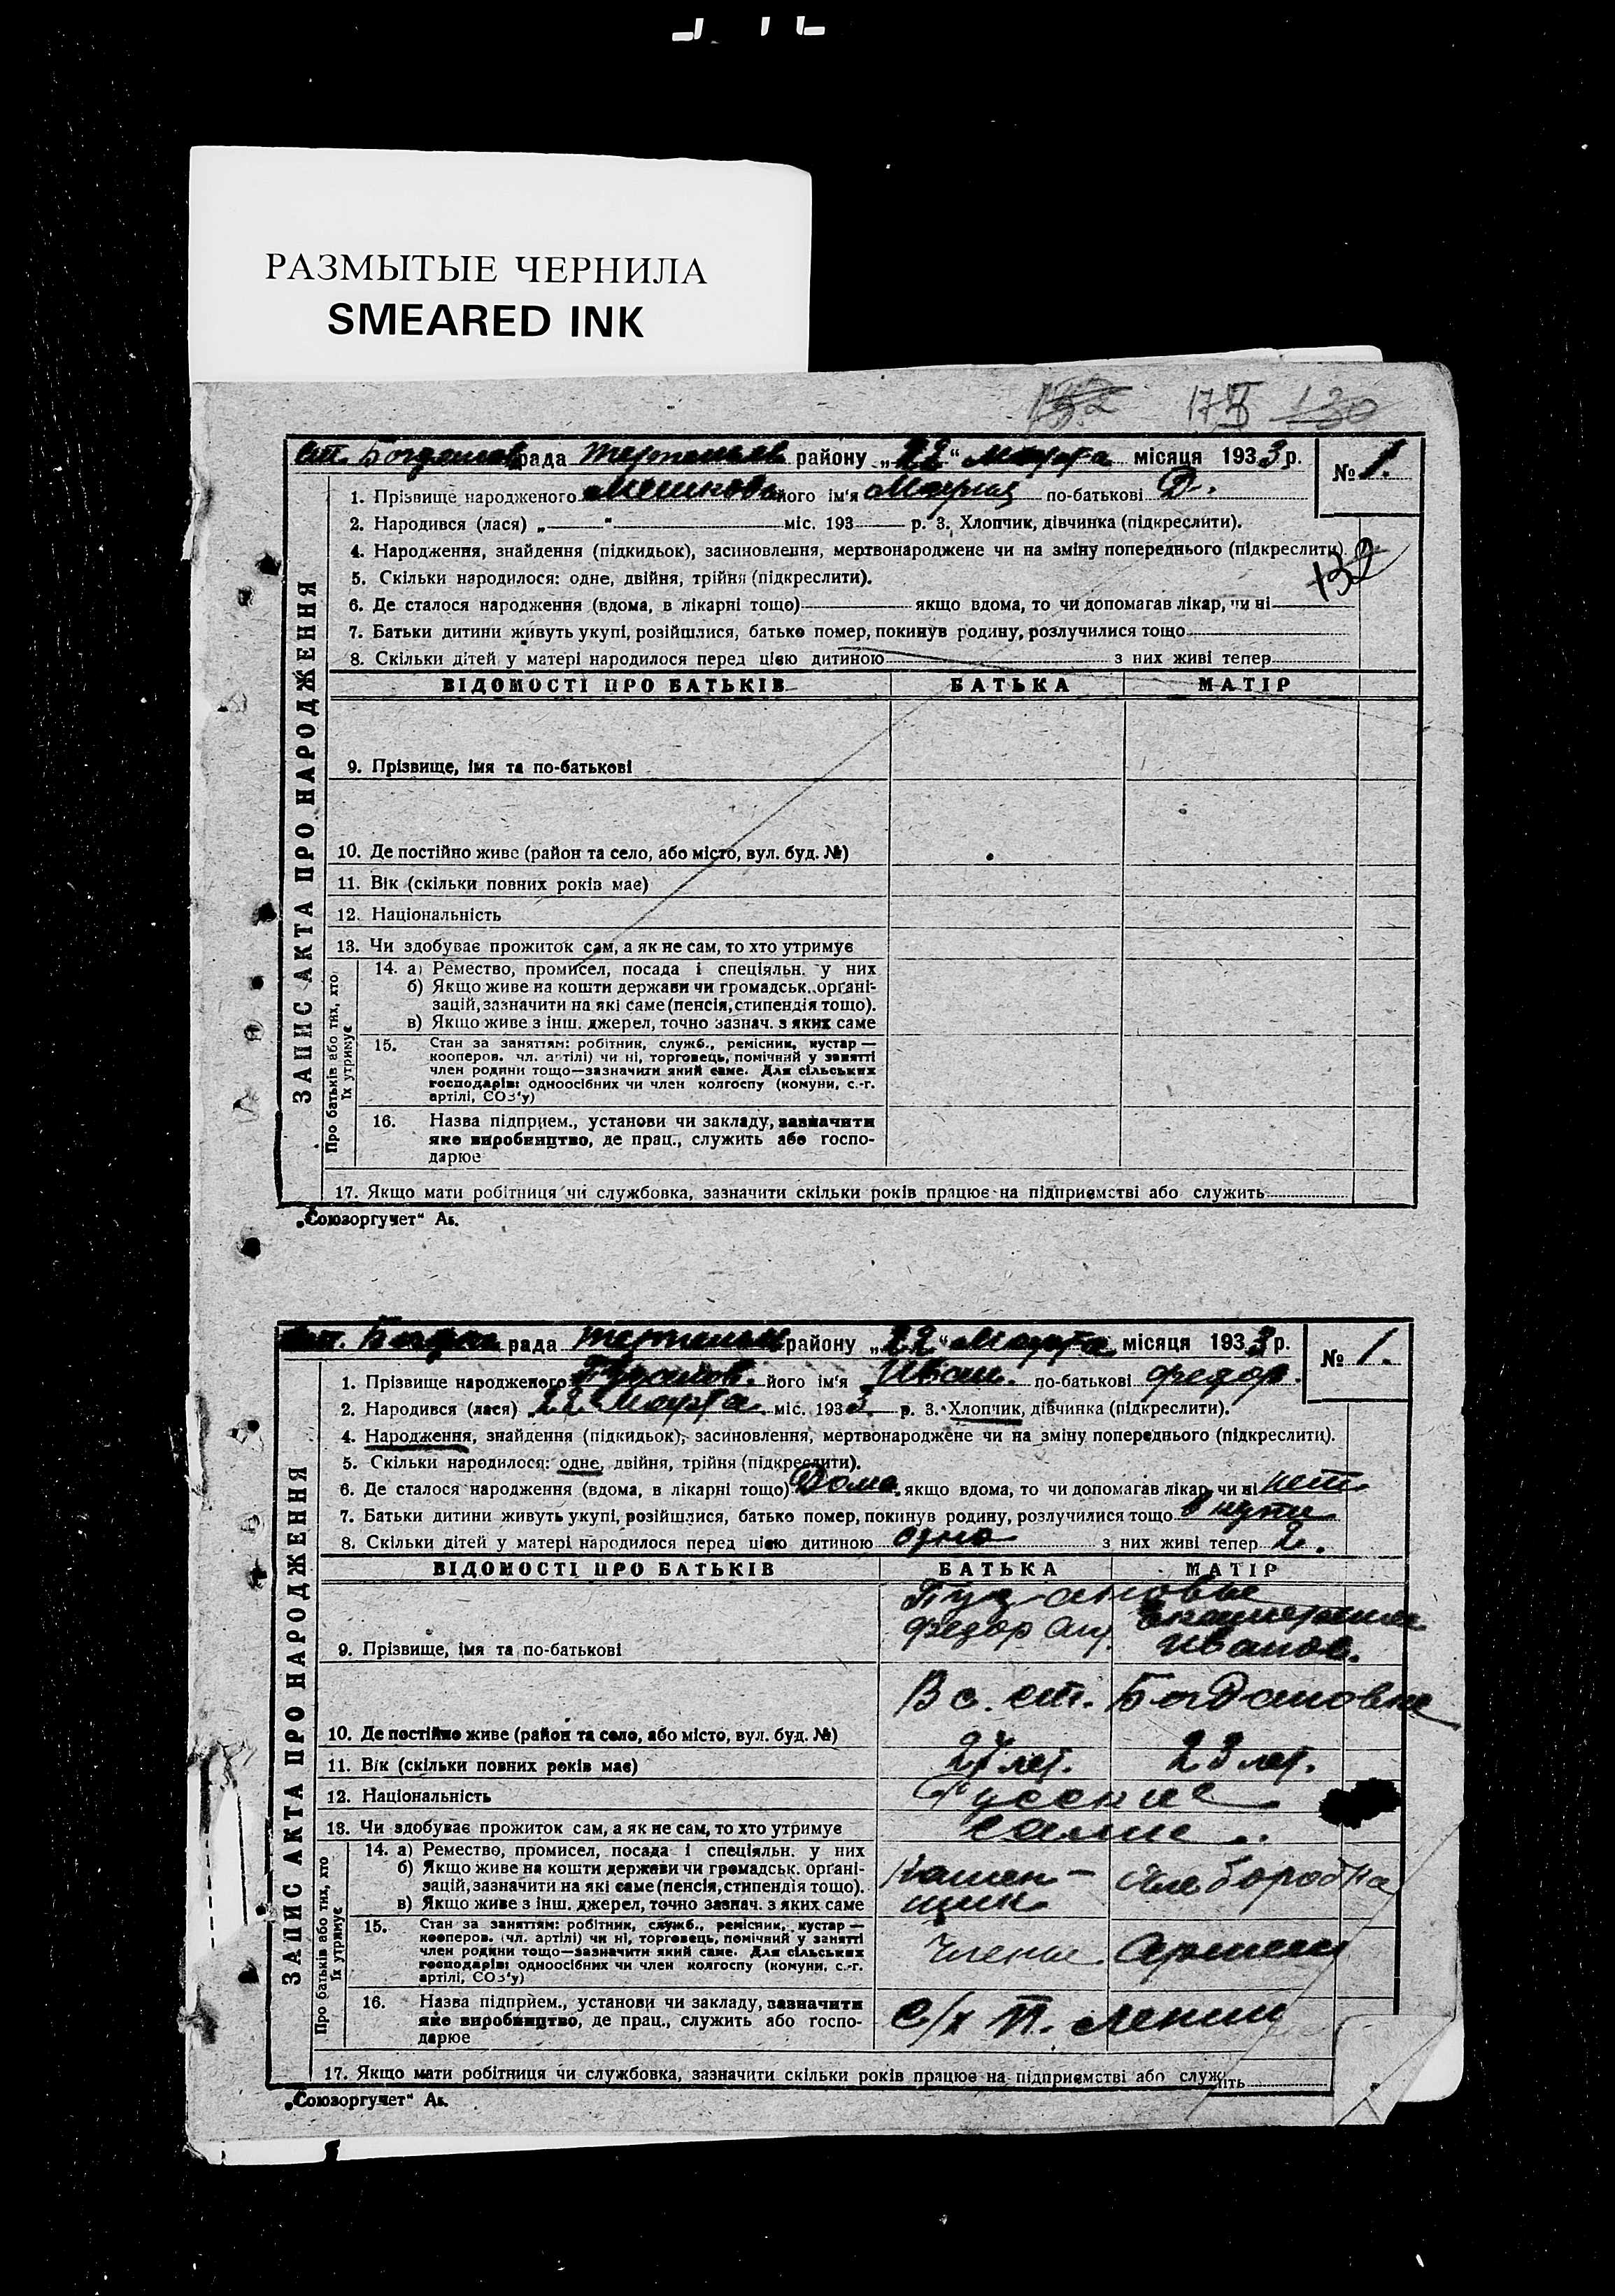 РАЗМЫТЫЕ ЧЕРНИЛА
SMEARED INK
132 175 130
ст. Богданов рада Терпеньев району „22“ Марта місяця 1933 р. № 1.
1. Прізвище народженого Мешкова його ім'я Мария по-батькові Д.
2. Народився (лася) „ “ міс. 193 р. 3. Хлопчик, дівчинка (підкреслити).
4. Народження, знайдення (підкидьок), засиновлення, мертвонароджене чи на зміну попереднього (підкреслити).
132
5. Скільки народилося: одне, двійня, трійня (підкреслити).
6. Де сталося народження (вдома, в лікарні тощо) якщо вдома, то чи допомагав лікар, чи ні
7. Батьки дитини живуть укупі, розійшлися, батько помер, покинув родину, розлучилися тощо
8. Скільки дітей у матері народилося перед цією дитиною з них живі тепер
ВІДОМОСТІ ПРО БАТЬКІВ БАТЬКА МАТІР
ЗАПИС АКТА ПРО НАРОДЖЕННЯ
9. Прізвище, імя та по-батькові
10. Де постійно живе (район та село, або місто, вул. буд. №)
11. Вік (скільки повних років має)
12. Національність
13. Чи здобуває прожиток сам, а як не сам, то хто утримує
Про батьків або тих, хто
їх утримує
14. а) Ремество, промисел, посада і спеціяльн. у них
б) Якщо живе на кошти держави чи громадськ. орґані-
зацій, зазначити на які саме (пенсія, стипендія тощо).
в) Якщо живе з інш. джерел, точно зазнач. з яких саме
15. Стан за заняттям: робітник, служб., ремісник, кустар —
кооперов. чл. артілі) чи ні, торговець, помічний у занятті
член родини тощо—зазначити який саме. Для сільських
господарів: одноосібних чи член колгоспу (комуни, с.-г.
артілі, СОЗ'у)
16. Назва підприєм., установи чи закладу, зазначити
яке виробництво, де прац., служить або госпо-
дарює
17. Якщо мати робітниця чи службовка, зазначити скільки років працює на підприємстві або служить
„Союзоргучет“ А₅.
ст. Богдан рада Терпеньев району „22“ Марта місяця 1933 р. № 1.
1. Прізвище народженого його ім'я Иван. по-батькові Федор.
2. Народився (лася) „22 Марта міс. 1933 р. 3. Хлопчик, дівчинка (підкреслити).
4. Народження, знайдення (підкидьок), засиновлення, мертвонароджене чи на зміну попереднього (підкреслити).
5. Скільки народилося: одне, двійня, трійня (підкреслити).
6. Де сталося народження (вдома, в лікарні тощо) Дома. якщо вдома, то чи допомагав лікар, чи ні нет
7. Батьки дитини живуть укупі, розійшлися, батько помер, покинув родину, розлучилися тощо
8. Скільки дітей у матері народилося перед цією дитиною одно з них живі тепер 2.
ВІДОМОСТІ ПРО БАТЬКІВ БАТЬКА МАТІР
ЗАПИС АКТА ПРО НАРОДЖЕННЯ
Федор
9. Прізвище, імя та по-батькові Иванов.
В с. ст. Богдановке
10. Де постійно живе (район та село, або місто, вул. буд. №)
11. Вік (скільки повних років має) 27 лет. 23 лет.
12. Національність Русские
13. Чи здобуває прожиток сам, а як не сам, то хто утримує сами.
Про батьків або тих, хто
їх утримує
14. а) Ремество, промисел, посада і спеціяльн. у них
б) Якщо живе на кошти держави чи громадськ. орґані- Камен- Хлебороб
зацій, зазначити на які саме (пенсія, стипендія тощо).
в) Якщо живе з інш. джерел, точно зазнач. з яких саме щик
15. Стан за заняттям: робітник, служб., ремісник, кустар —
кооперов. (чл. артілі) чи ні, торговець, помічний у занятті
член родини тощо—зазначити який саме. Для сільських Члены Артели
господарів: одноосібних чи член колгоспу (комуни, с.-г.
артілі, СОЗ'у)
16. Назва підприєм., установи чи закладу, зазначити
яке виробництво, де прац., служить або госпо- с/х П. Ленин
дарює
17. Якщо мати робітниця чи службовка, зазначити скільки років працює на підприємстві або служить
„Союзоргучет“ А₅.